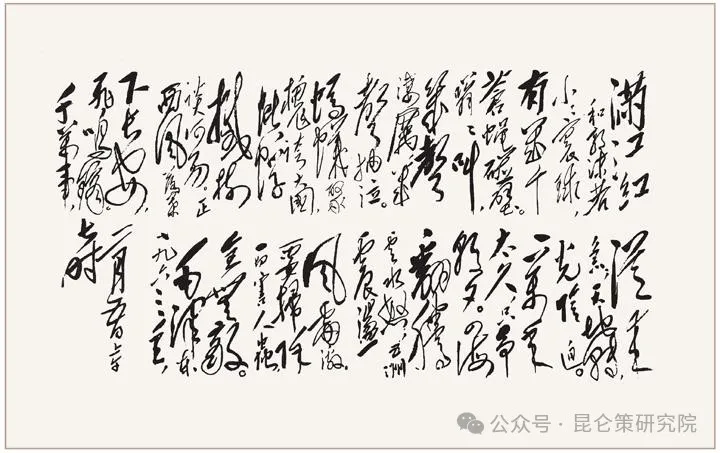 满江红
和郭沫若
小小寰球,
有几个
苍蝇碰壁。
嗡嗡叫,
几声
凄厉,几
声抽泣。
蚂蚁缘
槐夸大国,
蚍蜉
撼树
谈何易。正
西风落叶
下长安,
飞鸣镝。
千万事,
从来
急。天地转,
光阴迫。
一万年
太久,只争
朝夕。四海
翻腾
云水怒,五洲
震荡
风雷激。
要扫除
一切害人虫,
全无敌。
毛泽东
一九六三年
公众号·昆仑策研究院